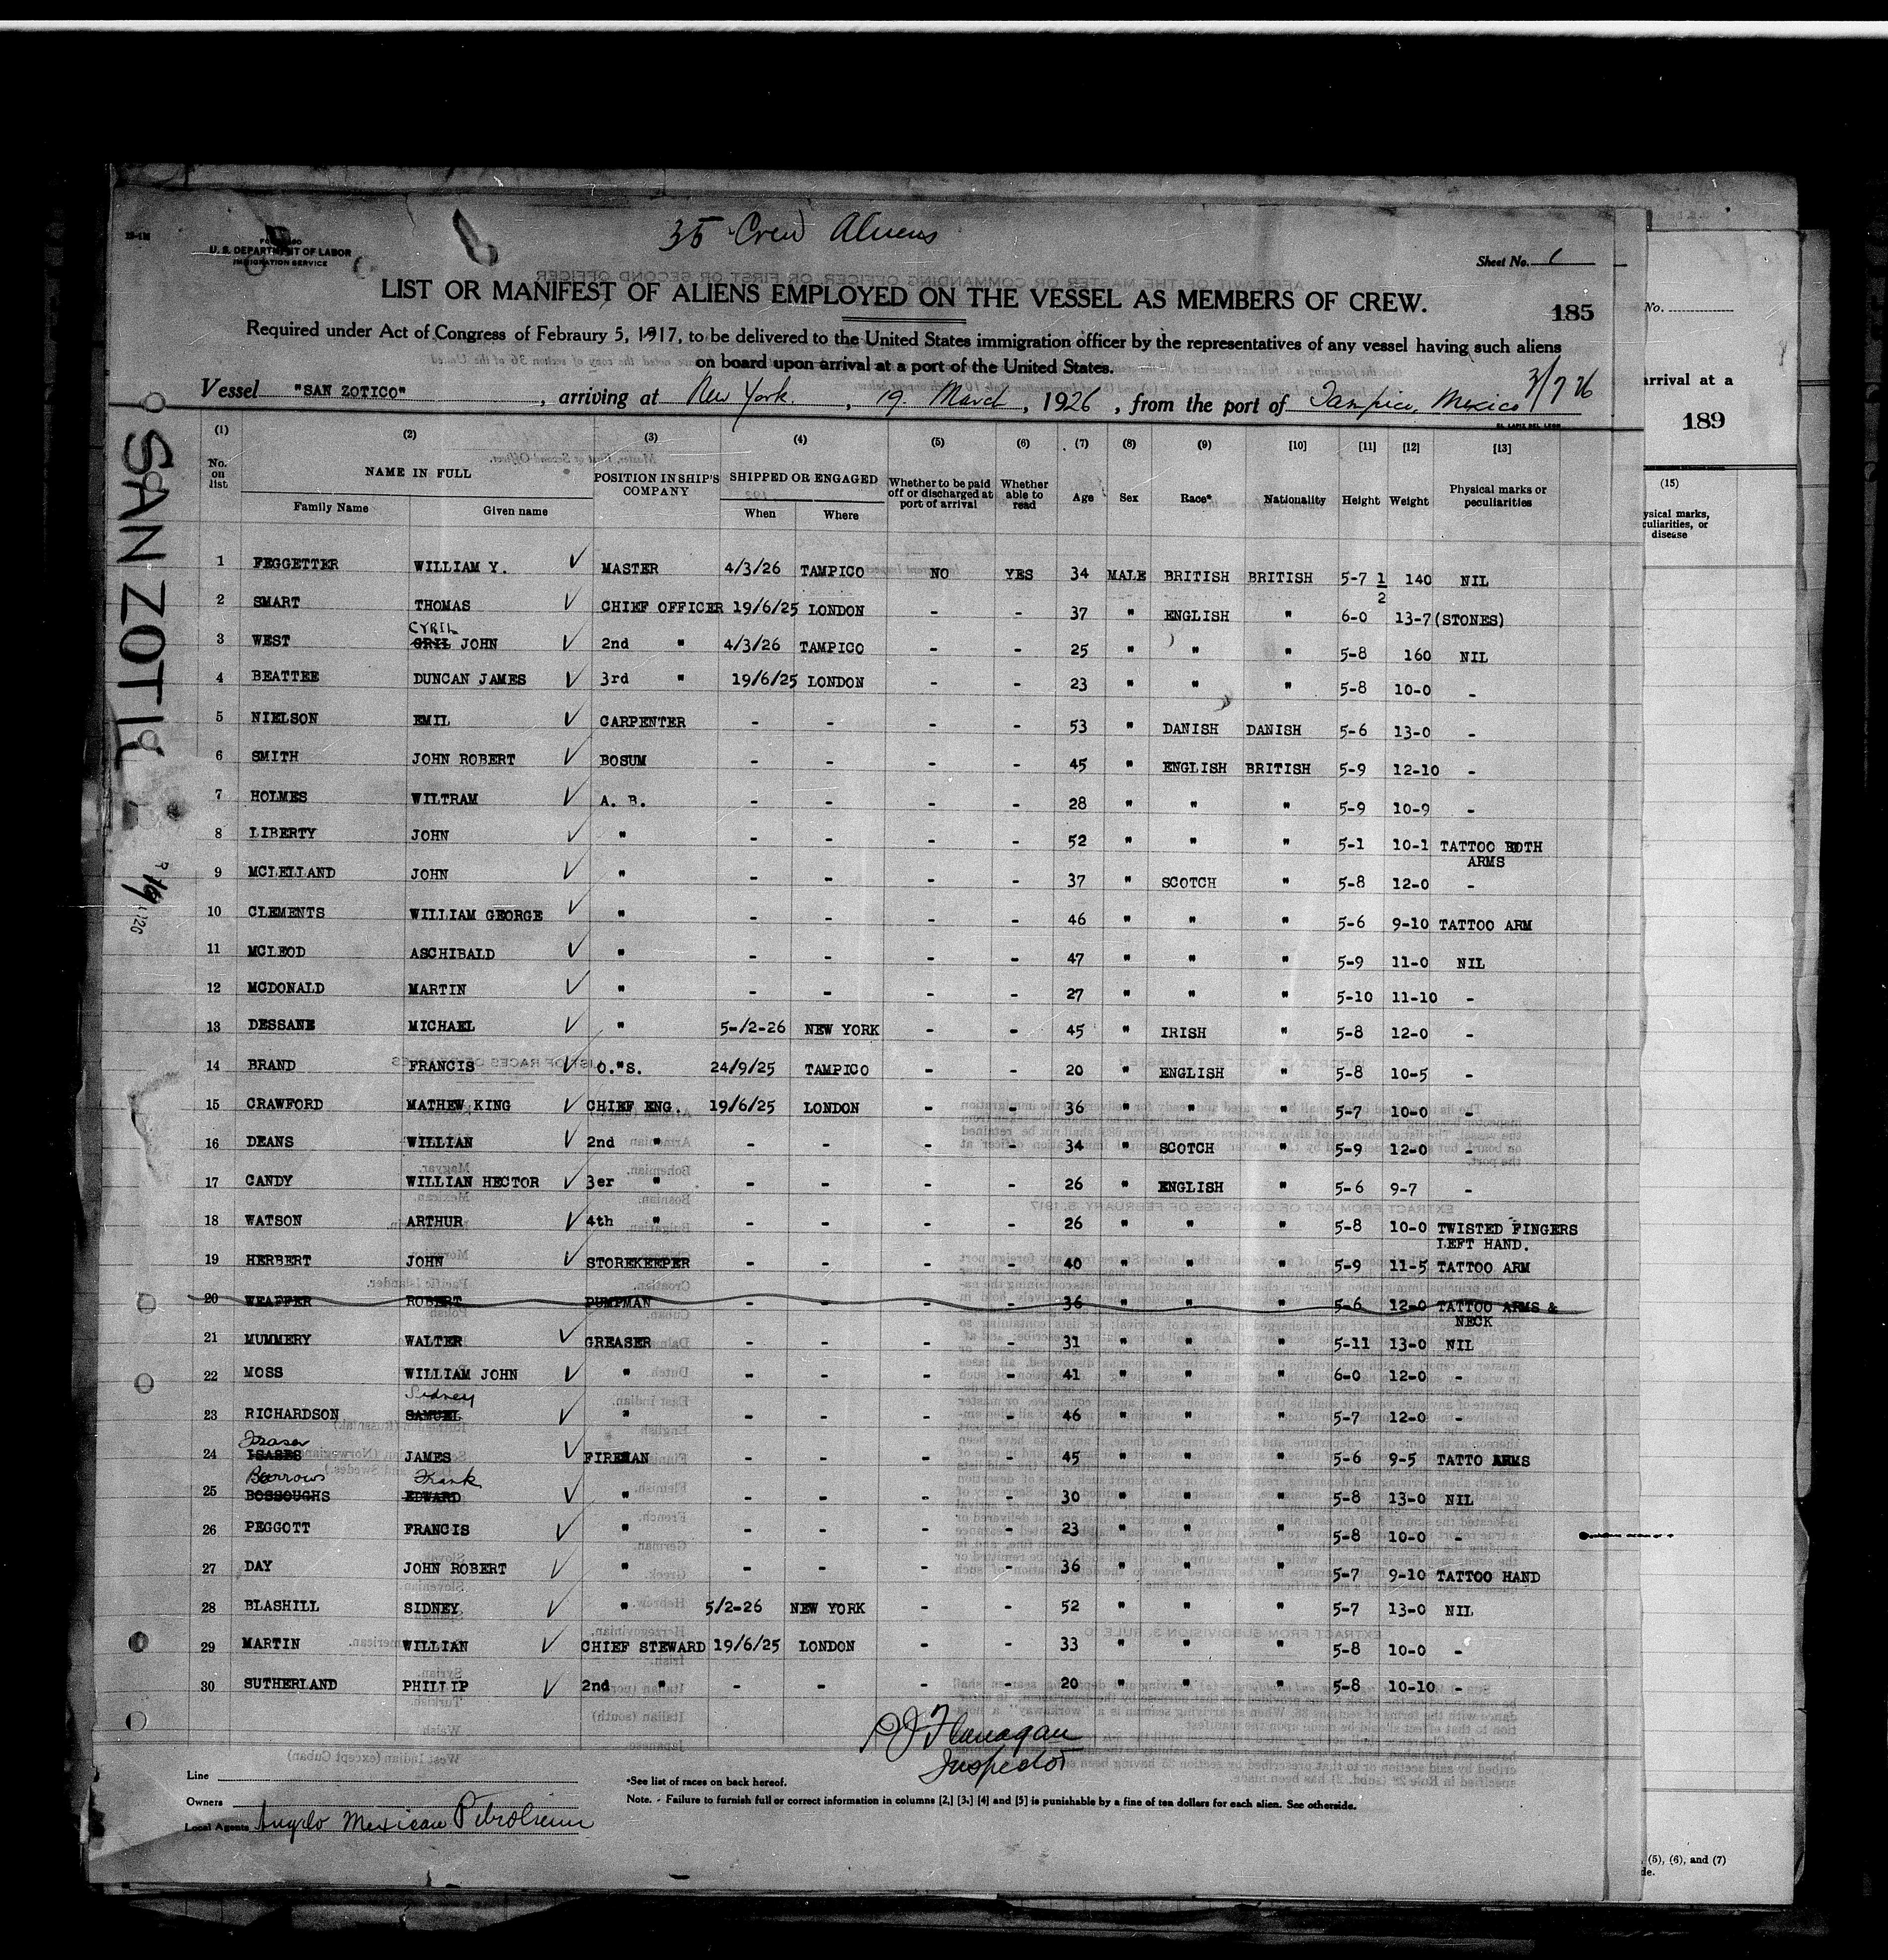 35 Crew Aliens
U. S. DEPARTMENT OF LABOR
IMMIGRATION SERVICE
Sheet No. 1
LIST OR MANIFEST OF ALIENS EMPLOYED ON THE VESSEL AS MEMBERS OF CREW.
185
Required under Act of Congress of Febraury 5, 1917, to be delivered to the United States immigration officer by the representatives of any vessel having such aliens
on board upon arrival at a port of the United States.
Vessel "SAN ZOTICO", arriving at New York, 19 March, 1926, from the port of Tampico, Mexico
(1) (2) (3) (4) (5) (6) (7) (8) (9) [10] [11] [12] [13]
No. on list NAME IN FULL Family Name Given name POSITION IN SHIP'S COMPANY SHIPPED OR ENGAGED When Where Whether to be paid off or discharged at port of arrival Whether able to read Age Sex Race* Nationality Height Weight Physical marks or peculiarities
1 FEGGETTER WILLIAM Y. ✓ MASTER 4/3/26 TAMPICO NO YES 34 MALE BRITISH BRITISH 5-7 1/2 140 NIL
2 SMART THOMAS ✓ CHIEF OFFICER 19/6/25 LONDON - - 37 " ENGLISH " 6-0 13-7 (STONES)
CYRIL
3 WEST GRIL JOHN ✓ 2nd " 4/3/26 TAMPICO - - 25 " " " 5-8 160 NIL
4 BEATTEE DUNCAN JAMES ✓ 3rd " 19/6/25 LONDON - - 23 " " " 5-8 10-0 -
5 NIELSON EMIL ✓ CARPENTER - - - - 53 " DANISH DANISH 5-6 13-0 -
6 SMITH JOHN ROBERT ✓ BOSUM - - - - 45 " ENGLISH BRITISH 5-9 12-10 -
7 HOLMES WILTRAM ✓ A. B. - - - - 28 " " " 5-9 10-9 -
8 LIBERTY JOHN ✓ " - - - - 52 " " " 5-1 10-1 TATTOO BOTH
ARMS
9 MCLELLAND JOHN ✓ " - - - - 37 " SCOTCH " 5-8 12-0 -
10 CLEMENTS WILLIAM GEORGE ✓ " - - - - 46 " " " 5-6 9-10 TATTOO ARM
11 MCLEOD ASCHIBALD ✓ " - - - - 47 " " " 5-9 11-0 NIL
12 MCDONALD MARTIN ✓ " - - - - 27 " " " 5-10 11-10 -
13 DESSANE MICHAEL ✓ " 5-/2-26 NEW YORK - - 45 " IRISH " 5-8 12-0 -
14 BRAND FRANCIS ✓ O."S. 24/9/25 TAMPICO - - 20 " ENGLISH " 5-8 10-5 -
15 CRAWFORD MATHEW KING ✓ CHIEF ENG. 19/6/25 LONDON - - 36 " " " 5-7 10-0 -
16 DEANS WILLIAN ✓ 2nd " - - - - 34 " SCOTCH " 5-9 12-0 -
17 CANDY WILLIAN HECTOR ✓ 3er " - - - - 26 " ENGLISH " 5-6 9-7 -
18 WATSON ARTHUR ✓ 4th " - - - - 26 " " " 5-8 10-0 TWISTED FINGERS
LEFT HAND.
19 HERBERT JOHN ✓ STOREKEEPER - - - - 40 " " " 5-9 11-5 TATTOO ARM
20 WEAFFER ROBERT PUMPMAN - - - - 36 " " " 5-6 12-0 TATTOO ARMS &
NECK
21 MUMMERY WALTER ✓ GREASER - - - - 31 " " " 5-11 13-0 NIL
22 MOSS WILLIAM JOHN ✓ " - - - - 41 " " " 6-0 12-0 -
Sidney
23 RICHARDSON SAMUEL ✓ " - - - - 46 " " " 5-7 12-0 -
Fraser
24 ISASES JAMES ✓ FIREMAN - - - - 45 " " " 5-6 9-5 TATTO ARMS
Burrows Frank
25 BOSSOUGHS EDWARD ✓ " - - - - 30 " " " 5-8 13-0 NIL
26 PEGGOTT FRANCIS ✓ " - - - - 23 " " " 5-8 10-0 -
27 DAY JOHN ROBERT ✓ " - - - - 36 " " " 5-7 9-10 TATTOO HAND
28 BLASHILL SIDNEY ✓ " 5/2-26 NEW YORK - - 52 " " " 5-7 13-0 NIL
29 MARTIN WILLIAN ✓ CHIEF STEWARD 19/6/25 LONDON - - 33 " " " 5-8 10-0 -
30 SUTHERLAND PHILLIP ✓ 2nd " - - - - 20 " " " 5-8 10-10 -
Flanagan
Inspector
Line
Owners
Local Agents Anglo Mexican Petroleum
*See list of races on back hereof.
Note. - Failure to furnish full or correct information in columns [2,] [3,] [4] and [5] is punishable by a fine of ten dollars for each alien. See otherside.
SAN ZOTI
No.
arrival at a
189
(15)
ysical marks,
culiarities, or
disease
(5), (6), and (7)